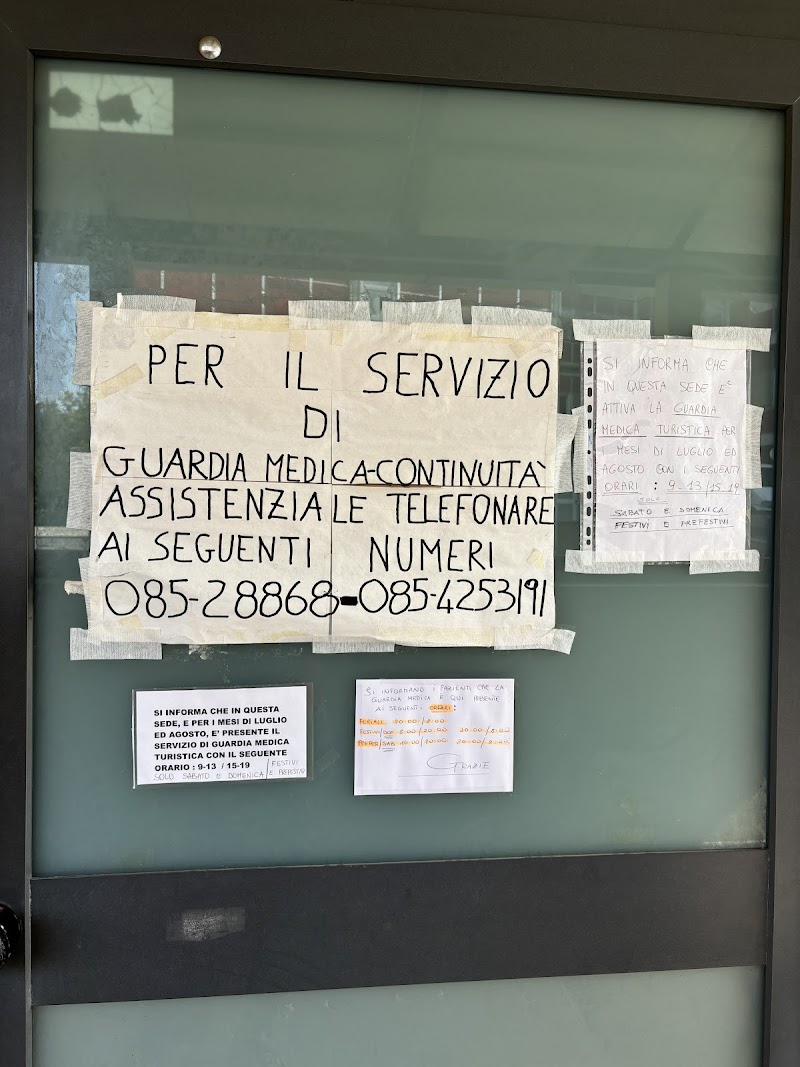 PER IL SERVIZIO
DI
GUARDIA MEDICA-CONTINUITA'
ASSISTENZIALE TELEFONARE
AI SEGUENTI NUMERI
085-28868-085-4253191
SI INFORMA CHE
IN QUESTA SEDE E'
ATTIVA LA GUARDIA
MEDICA TURISTICA PER
I MESI DI LUGLIO ED
AGOSTO CON I SEGUENTI
ORARI : 9-13/15-19
SOLO
SABATO E DOMENICA
FESTIVI E PREFESTIVI
SI INFORMA CHE IN QUESTA
SEDE, E PER I MESI DI LUGLIO
ED AGOSTO, E' PRESENTE IL
SERVIZIO DI GUARDIA MEDICA
TURISTICA CON IL SEGUENTE
ORARIO : 9-13 / 15-19
SOLO SABATO E DOMENICA / FESTIVI E PREFESTIVI
SI INFORMANO I PAZIENTI CHE LA
GUARDIA MEDICA E' QUI PRESENTE
AI SEGUENTI ORARI:
FERIALI 20:00/8:00
FESTIVI/DOM 8:00/20:00 20:00/8:00
PREFES/SAB 10:00/20:00 20:00/8:00
GRAZIE